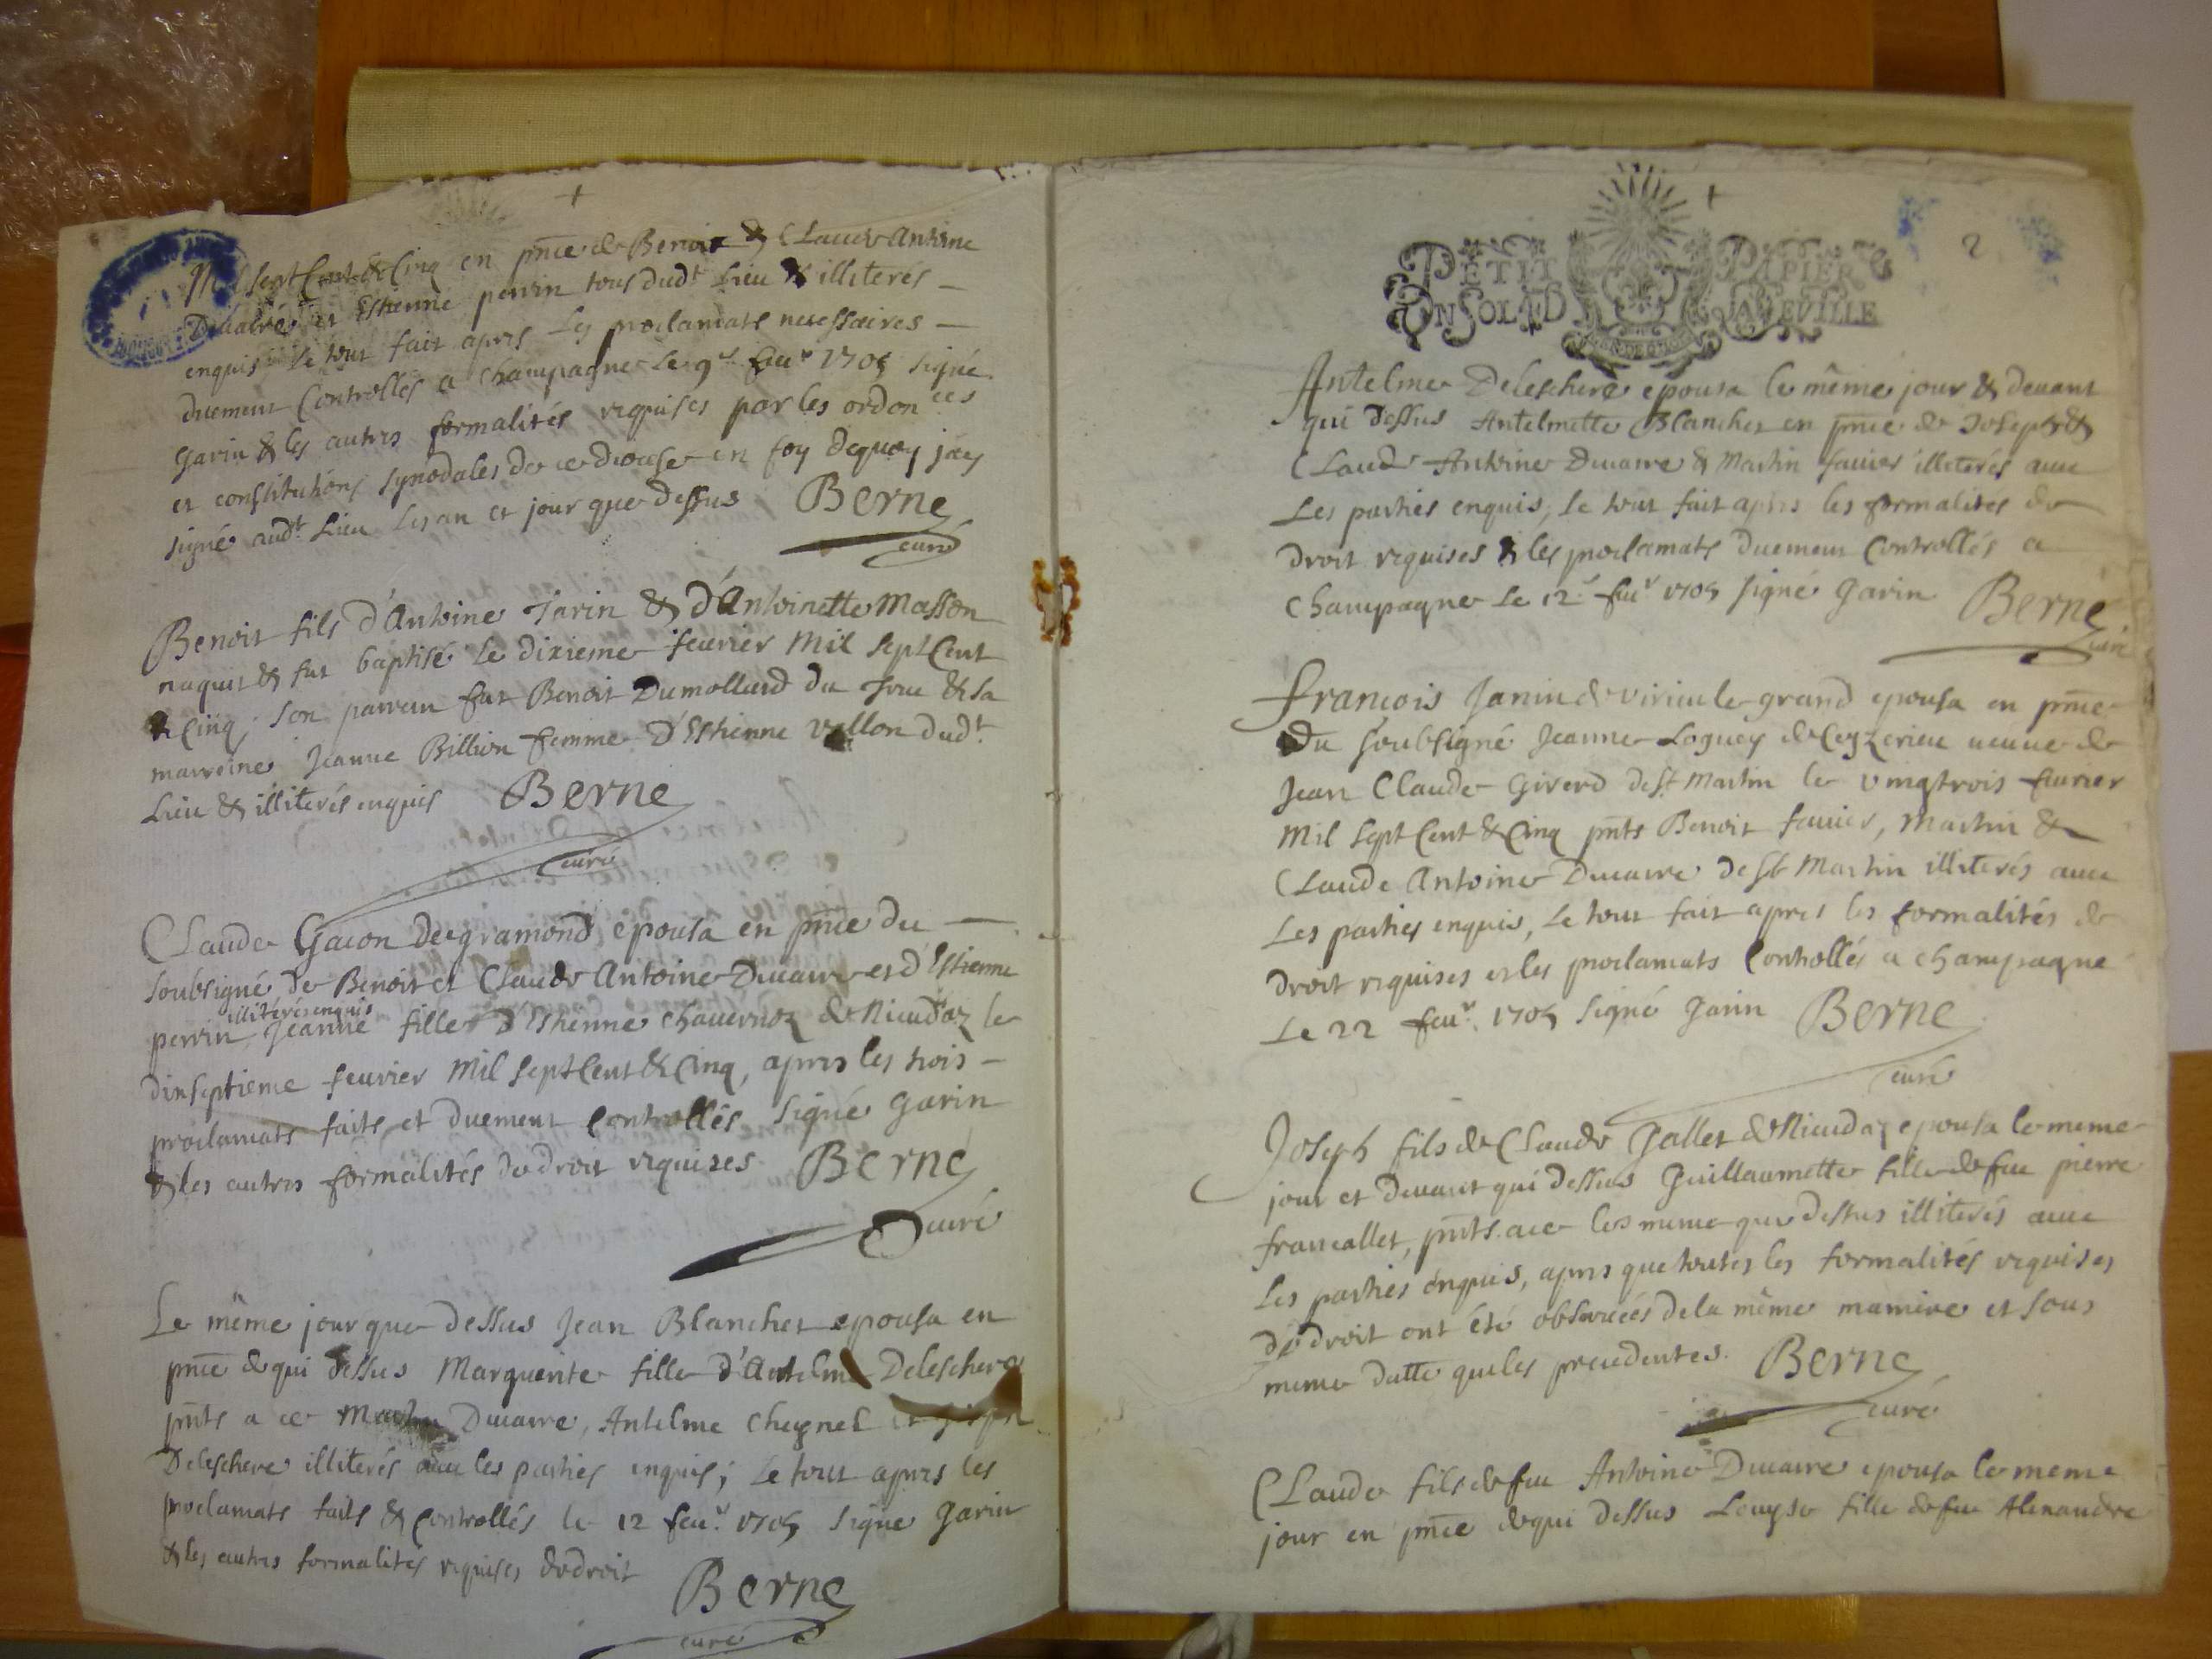 Mil sept Cent & Cinq en pnce de Benoit & Claude Antoine
Ducarre et Estienne perrin tous dudt Lieu & illiterés
enquis le tout fait apres Les proclamats necessaires
duement Controllés a Champagne Le 9e feur 1705 signé
Garin & les autres formalités requises par les ordonces
et constitutions synodales de ce diocese en foy dequoy jay
signé audt Lieu les an et jour que dessus Berne
curé
Benoit fils d'Antoine Tarin & d'Antoinette Masson
naquit & fut baptisé Le dixieme feurier Mil sept Cent
& Cinq; son parrein fut Benoit Dumollard du & sa
marreine Jeanne Billion femme D'Estienne vallon dudt
Lieu & illiterés enquis Berne
curé
Claude Gacon de gramond epousa en pnce du
soubsigné de Benoit et Claude Antoine Ducarre et d'Estienne
illiterés enquis
perrin Jeanne fille D'Estienne Chauernoz de Nieudaz le
dixseptieme feurier Mil sept Cent & Cinq, apres les trois
proclamats faits et duement Controllés signé Garin
& les autres formalités de droit requises Berne
curé
Le même jour que dessus Jean Blanchet epousa en
pnce de qui dessus Marguerite fille d'Antelme Deleschere
pnts a ce Martin Ducarre, Antelme Cheynel et Joseph
Deleschere illiterés auec les parties enquis; Le tout apres les
proclamats faits & Controllés le 12 feur. 1705 signé Garin
& les autres formalités requises de droit
Berne
curé
2
PETIT PAPIER
UN SOL 4D LA FEUILLE
Antelme Deleschere epousa le même jour & deuant
qui dessus Antelmette Blanchet en pnce de Joseph &
Claude Antoine Ducarre & Martin fauier illiterés auec
Les parties enquis, le tout fait apres les formalités de
droit requises & les proclamats duement Controllés a
Champagne Le 12e feur 1705 signé Garin Berne
curé
francois Janin de virieu le grand epousa en pnce
Du soubsigné Jeanne Loguey de Ceyzerieu ueuue de
Jean Claude Girerd de St Martin le vingtrois feurier
Mil sept Cent & Cinq pnts Benoit fauier, Martin &
Claude Antoine Ducarre de St Martin illiterés auec
Les parties enquis, Le tout fait apres les formalités de
droit requises et les proclamats Controllés a Champagne
Le 22 feur. 1705 signé Garin Berne
curé
Joseph fils de Claude Gallet de Nieudaz epousa le meme
jour et deuant qui dessus Guillaumette fille de feu pierre
francallet, pnts a ce les meme que dessus illiterés auec
Les parties enquis, apres que toutes les formalités requises
de droit ont été obseruées de la même maniere et sous
meme datte que les precedentes. Berne
curé
Claude fils de feu Antoine Ducarre epousa le meme
jour en pnce de qui dessus Louyse fille de feu Alexandre